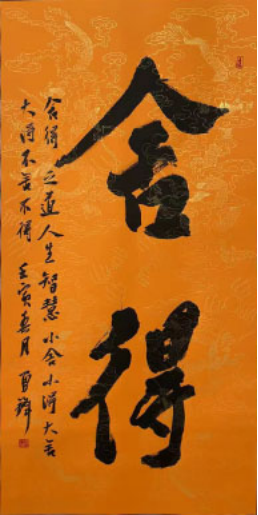 舍得
舍得之道人生智慧小舍小得大舍
大得不舍不得 壬寅春月